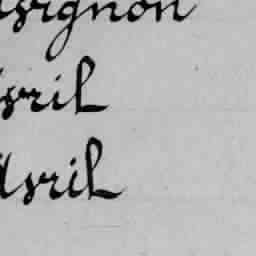 vignon
vril
Avril